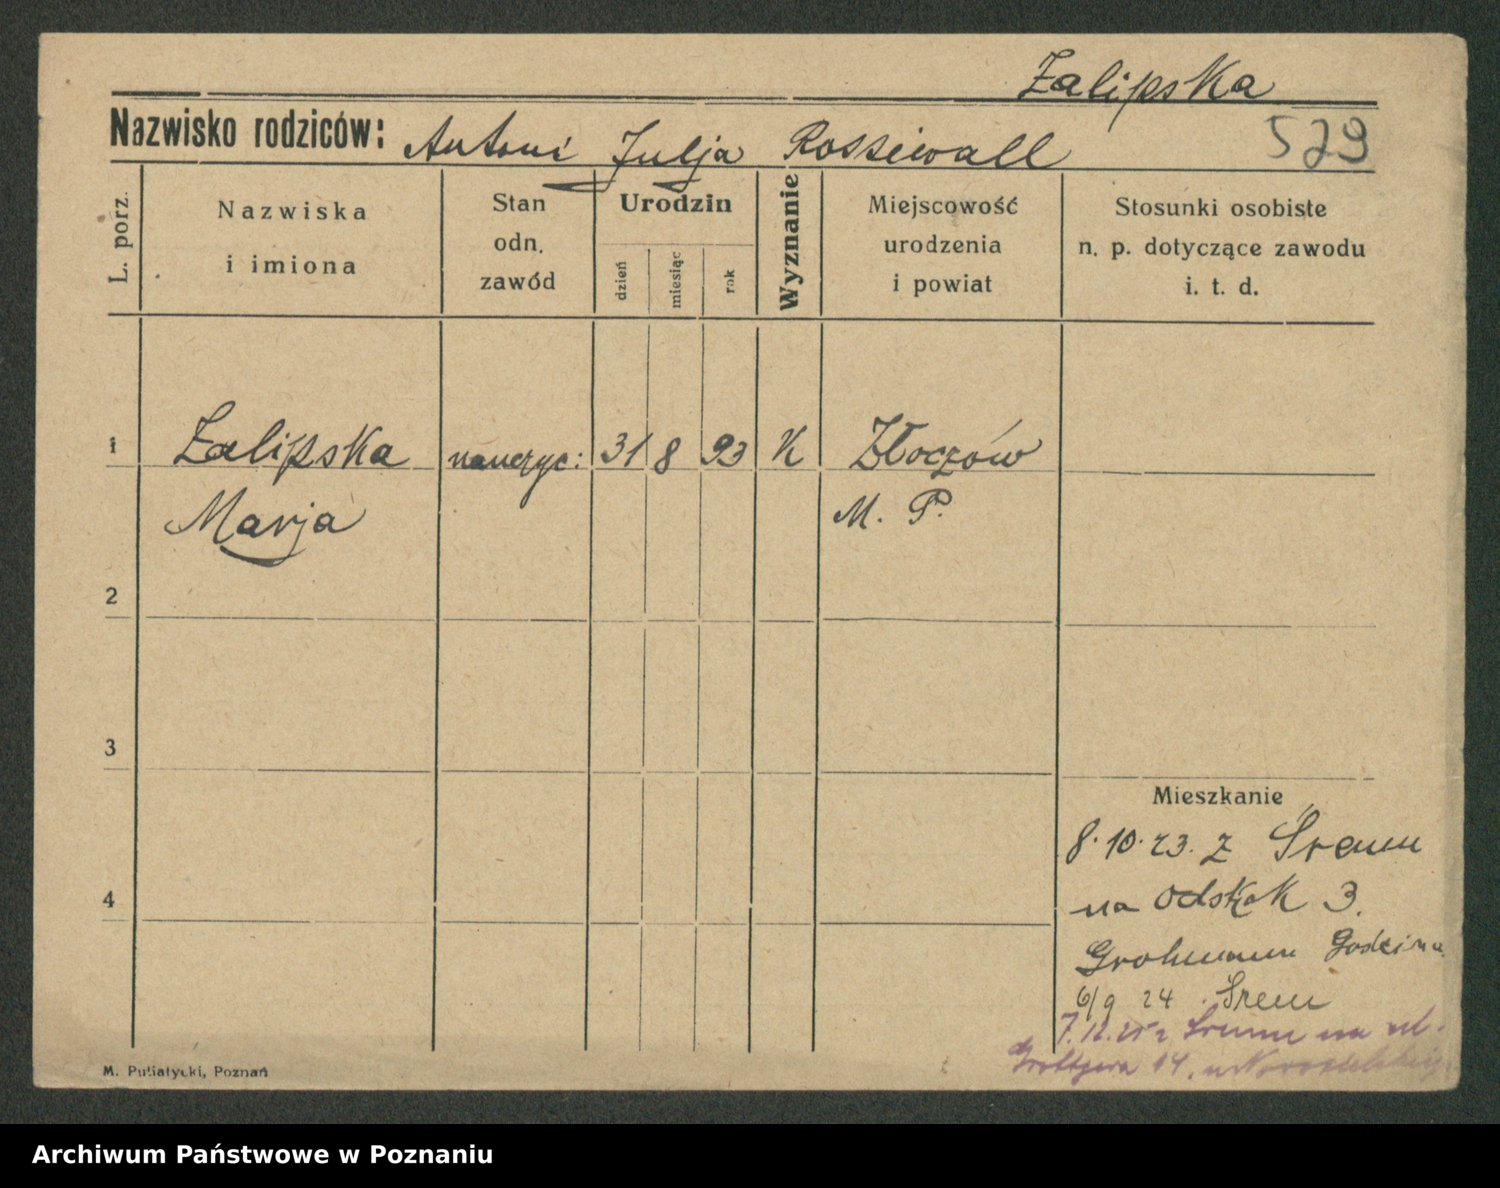 Zalipska
Nazwisko rodziców: Antoni Julja Rossiwall
579
L. porz.
Nazwiska
i imiona
Stan
odn.
zawód
Urodzin
dzień
miesiąc
rok
Wyznanie
Miejscowość
urodzenia
i powiat
Stosunki osobiste
n. p. dotyczące zawodu
i. t. d.
1 Zalipska nauczyc: 31 8 93 K Złoczów
Marja M. P.
2
3
Mieszkanie
8.10.23. z Śremu
4
na Odskok 3.
6/9 24 Śrem
7.12.25 z Śremu na ul.
Grottgera 14. u
M. Putiatycki, Poznań
Archiwum Państwowe w Poznaniu